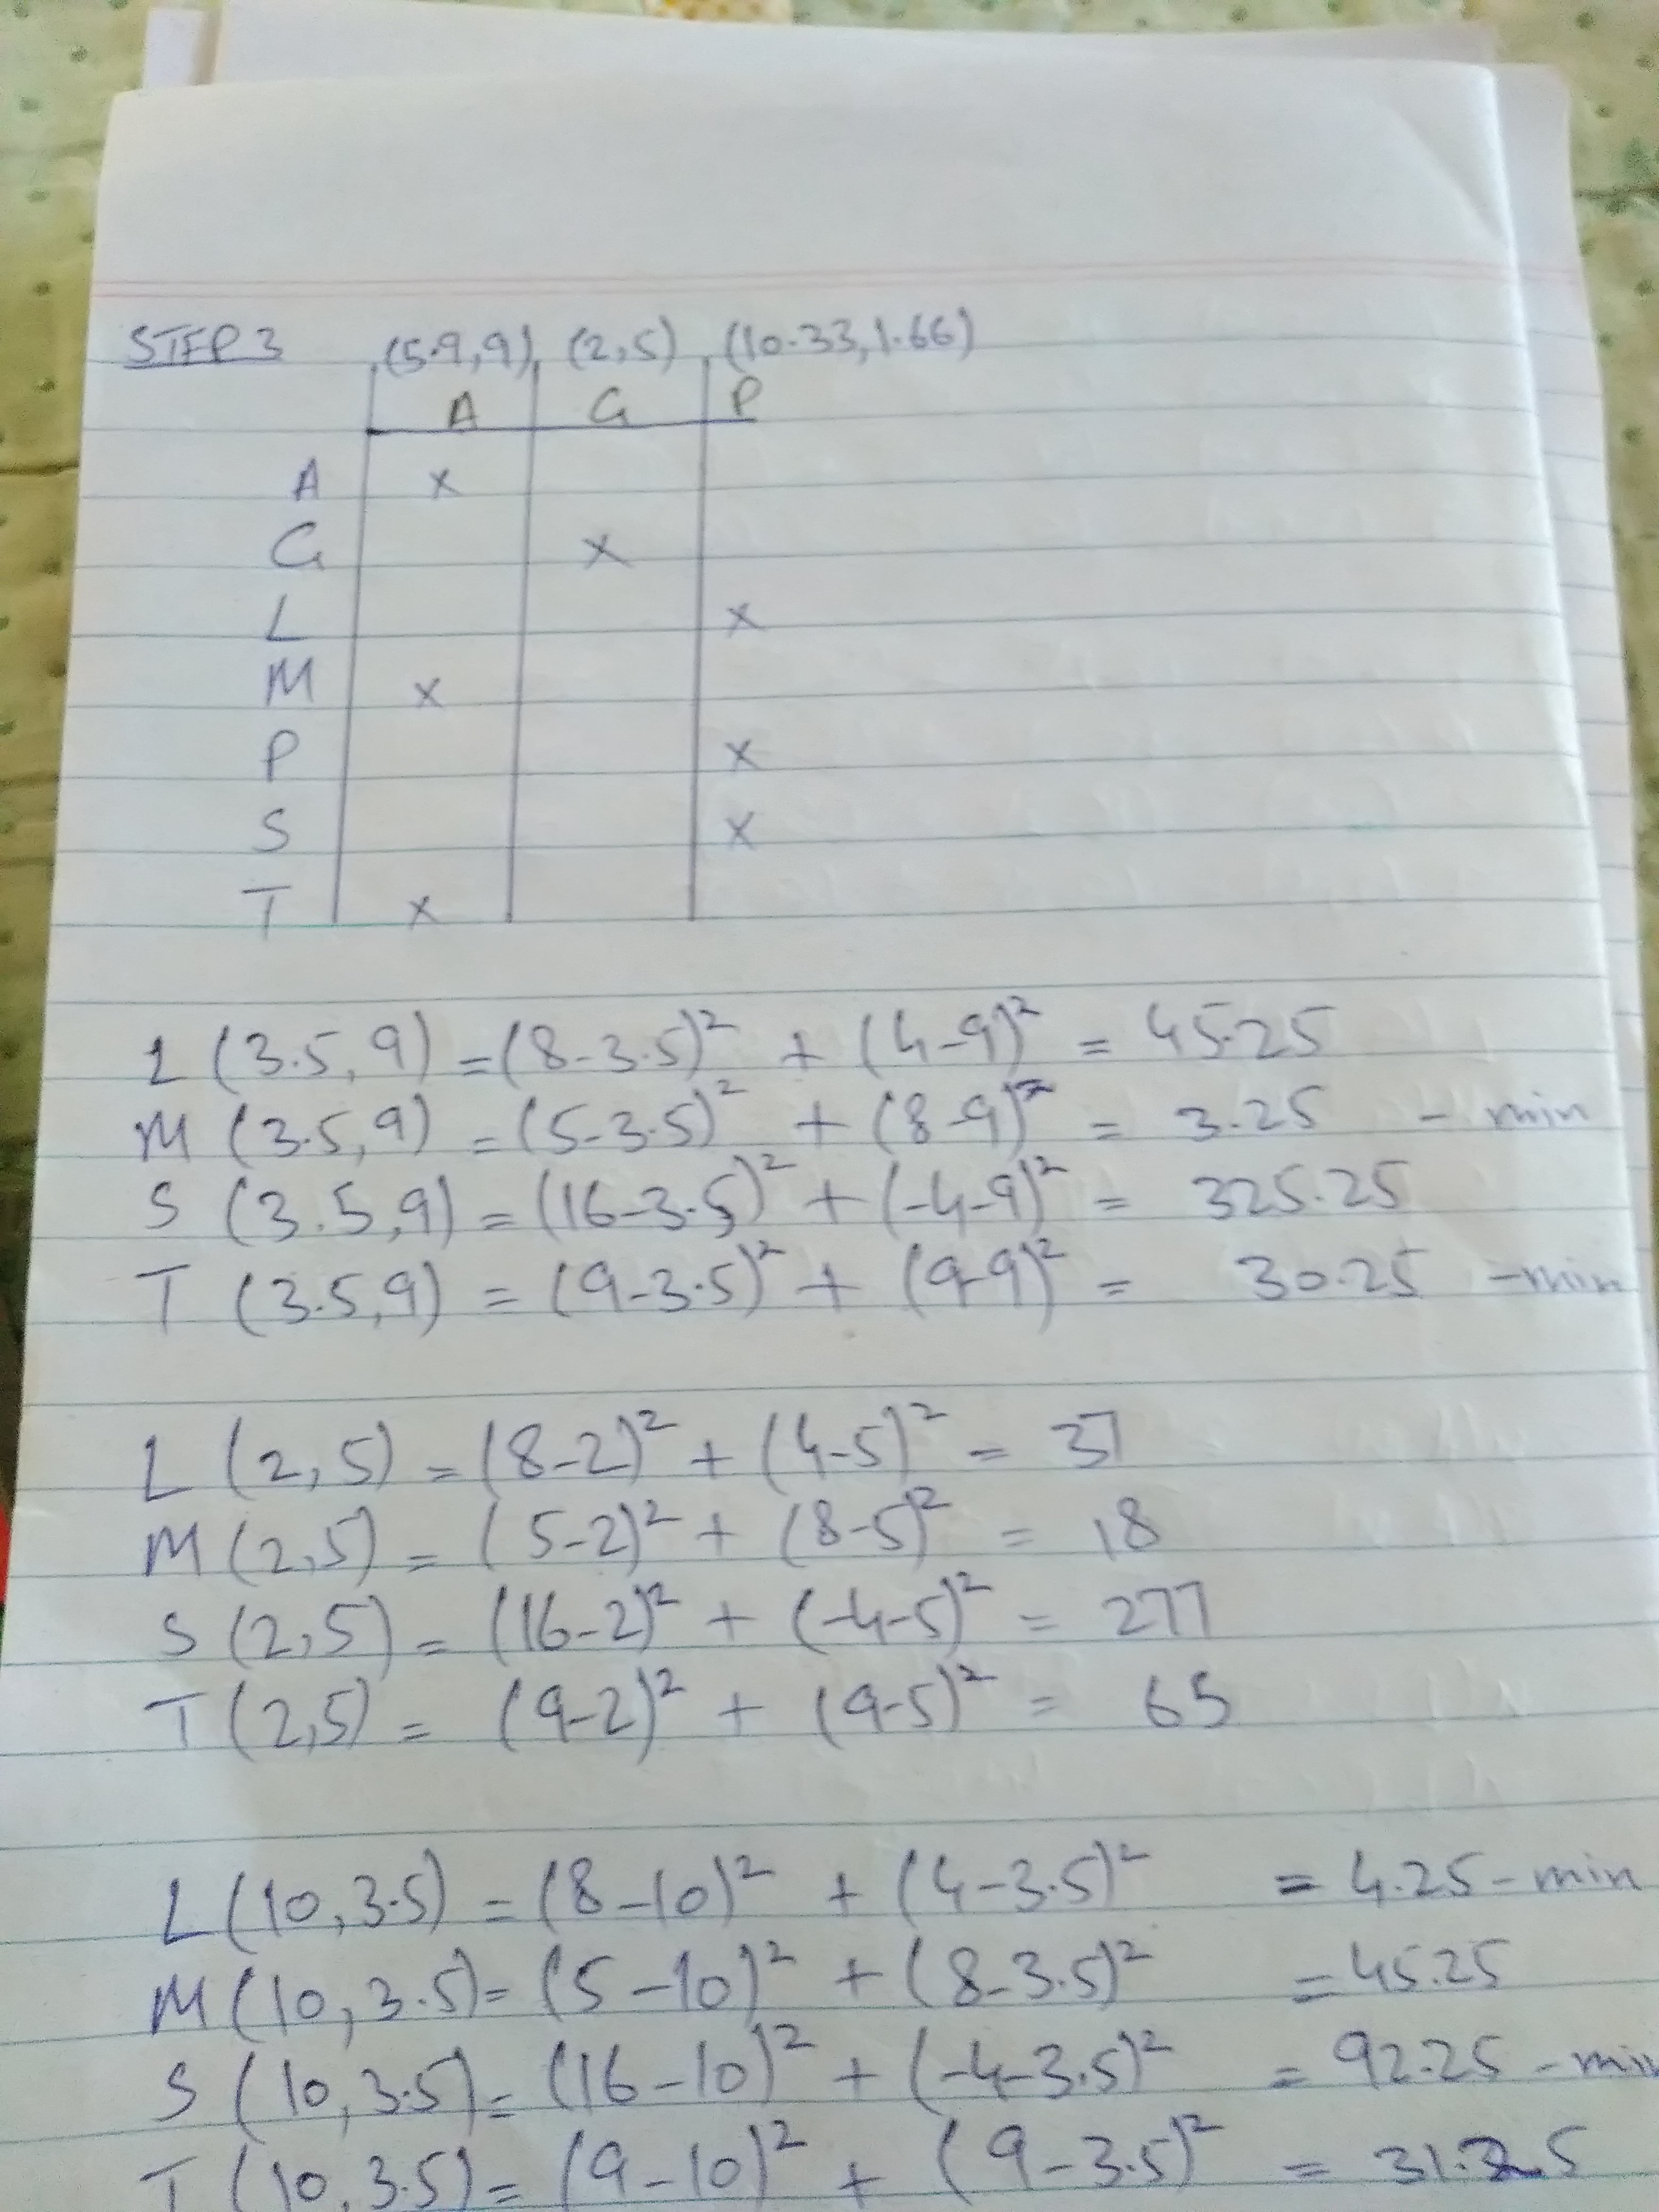 STEP 3 (5.9,9) (2,5) (10.33,1.66)
A G P
A x
G x
L x
M x
P x
S x
T x
L (3.5,9) = (8-3.5)² + (4-9)² = 45.25
M (3.5,9) = (5-3.5)² + (8-9)² = 3.25 - min
S (3.5,9) = (16-3.5)² + (-4-9)² = 325.25
T (3.5,9) = (9-3.5)² + (9-9)² = 30.25 - min
L (2,5) = (8-2)² + (4-5)² = 37
M (2,5) = (5-2)² + (8-5)² = 18
S (2,5) = (16-2)² + (-4-5)² = 277
T (2,5) = (9-2)² + (9-5)² = 65
L (10,3.5) = (8-10)² + (4-3.5)² = 4.25 - min
M (10,3.5) = (5-10)² + (8-3.5)² = 45.25
S (10,3.5) = (16-10)² + (-4-3.5)² = 92.25 - min
T (10,3.5) = (9-10)² + (9-3.5)² = 31.25